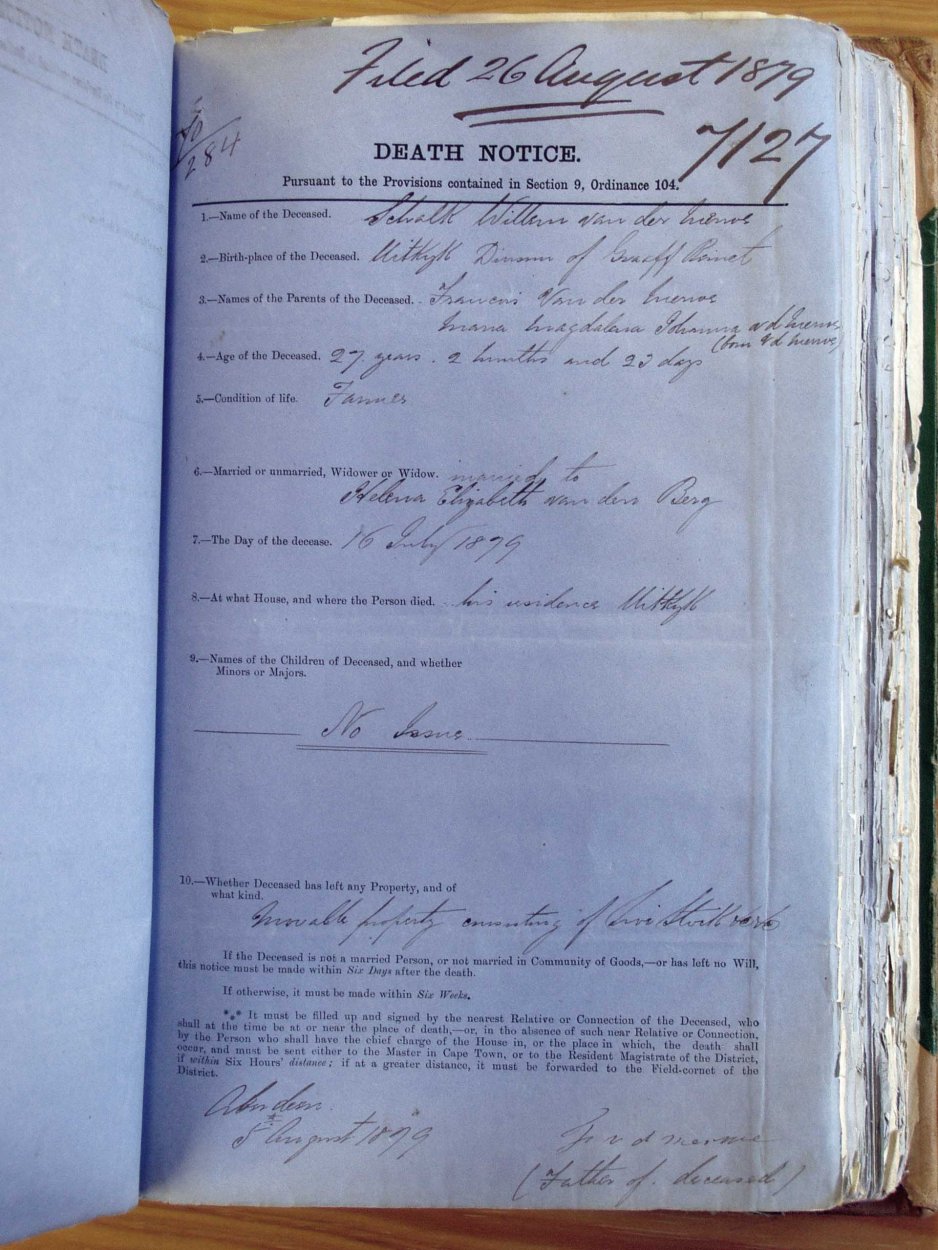 Filed 26 August 1879
7127
284
DEATH NOTICE.
Pursuant to the Provisions contained in Section 9, Ordinance 104.
1.—Name of the Deceased. Schalk Willem van der Merwe
2.—Birth-place of the Deceased. Uitkyk Division of Graaff Reinet
3.—Names of the Parents of the Deceased. Francois Van der Merwe
Maria Magdalena Johanna v d Merwe
(born v d Merwe)
4.—Age of the Deceased. 27 years . 2 Months and 23 days
5.—Condition of life. Farmer
6.—Married or unmarried, Widower or Widow. married to
Helena Elizabeth van den Berg
7.—The Day of the decease. 16 July 1879
8.—At what House, and where the Person died. his residence Uitkyk
9.—Names of the Children of Deceased, and whether
Minors or Majors.
No Issue
10.—Whether Deceased has left any Property, and of
what kind.
Movable property consisting of Live Stock
If the Deceased is not a married Person, or not married in Community of Goods,—or has left no Will,
this notice must be made within Six Days after the death.
If otherwise, it must be made within Six Weeks.
*** It must be filled up and signed by the nearest Relative or Connection of the Deceased, who
shall at the time be at or near the place of death,—or, in the absence of such near Relative or Connection,
by the Person who shall have the chief charge of the House in, or the place in which, the death shall
occur, and must be sent either to the Master in Cape Town, or to the Resident Magistrate of the District,
if within Six Hours' distance; if at a greater distance, it must be forwarded to the Field-cornet of the
District.
Aberdeen
8 August 1879
F v d Merwe
(Father of deceased)